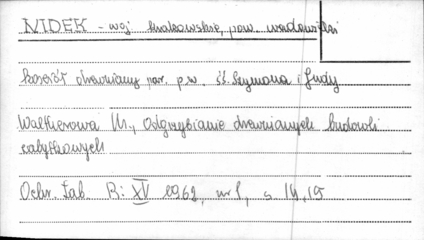 NIDEK - woj. krakowskie, pow. wadowicki
Kościół drewniany par. p.w. św. Szymona i Judy
Walkierowa M., Odgrzybianie drewnianych budowli
zabytkowych
Ochr. Zab. R: XV 1962, nr 1, s. 14, 15